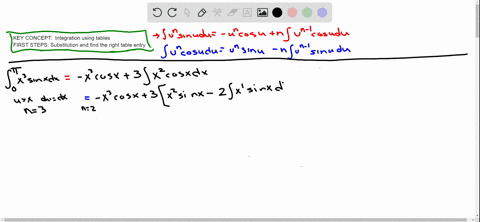 KEY CONCEPT: Integration using tables
FIRST STEPS: Substitution and find the right table entry
→ ∫uⁿ sinu du = -uⁿ cosu + n∫uⁿ⁻¹ cosu du
∫uⁿ cosu du = uⁿ sinu - n∫uⁿ⁻¹ sinu du
∫₀^π x³ sinx dx = -x³ cosx + 3∫x² cosx dx
u=x du=dx
n=3
= -x³ cosx + 3[x² sinx - 2∫x¹ sinx d
n=2